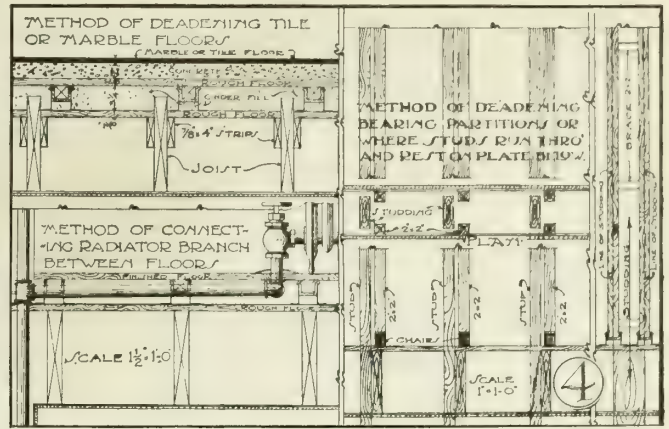 METHOD OF DEADENING TILE
OR MARBLE FLOORS
MARBLE OR TILE FLOOR
CONCRETE
ROUGH FLOOR
CINDER FILL
ROUGH FLOOR
7/8 × 4" STRIPS
JOIST
METHOD OF CONNECT-
-ING RADIATOR BRANCH
BETWEEN FLOORS
FINISHED FLOOR
ROUGH FLOOR
SCALE 1½"=1'-0"
METHOD OF DEADENING
BEARING PARTITIONS OR
WHERE STUDS RUN THRO'
AND REST ON PLATE BELOW.
STUDDING
2"×2"
PLAN
STUD
2"×2"
STUD
2"×2"
STUD
2"×2"
CHAIRS
SCALE
1"=1'-0"
4
LINE OF STUDDING
BRACE
STUDDING
LINE OF STUDDING